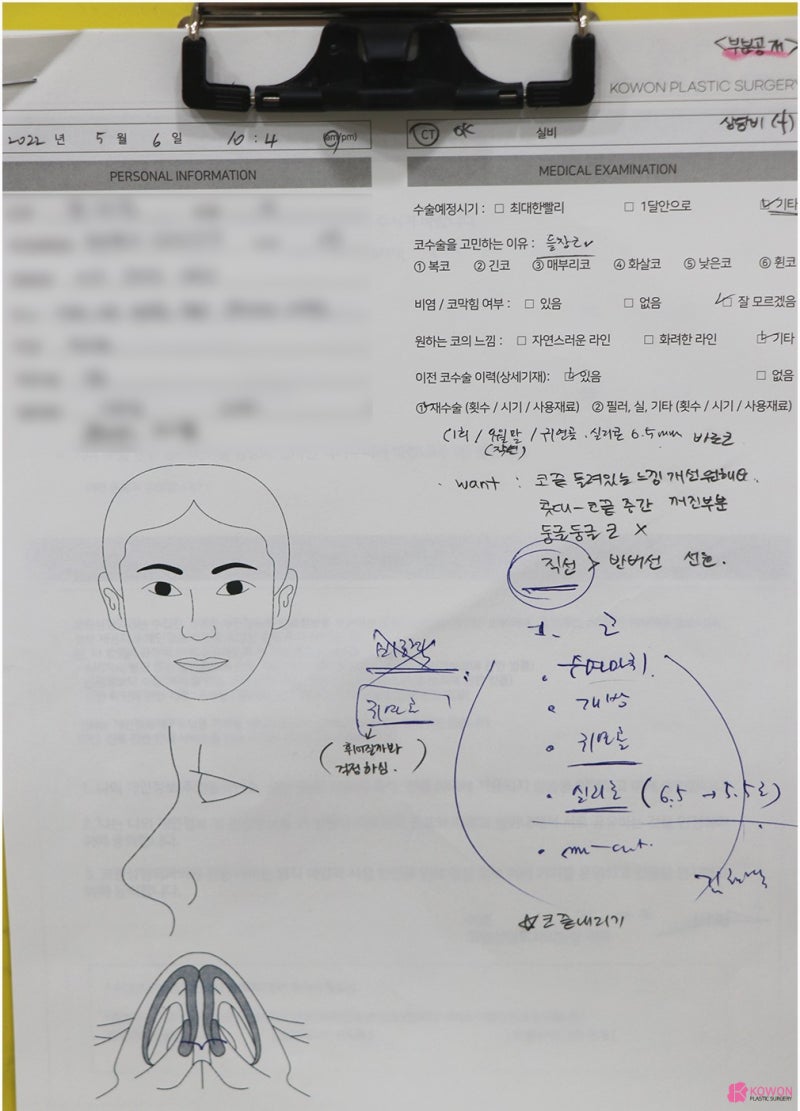 <부분공개>
KOWON PLASTIC SURGERY
2022 년 5 월 6 일 10 : 4 (am/pm)
CT OK 실비 상담비 (+)
PERSONAL INFORMATION
MEDICAL EXAMINATION
수술예정시기 : □ 최대한빨리 □ 1달안으로 □ 기타
코수술을 고민하는 이유 : 들창코
① 복코 ② 긴코 ③ 매부리코 ④ 화살코 ⑤ 낮은코 ⑥ 휜코
비염 / 코막힘 여부 : □ 있음 □ 없음 □ 잘 모르겠음
원하는 코의 느낌 : □ 자연스러운 라인 □ 화려한 라인 □ 기타
이전 코수술 이력(상세기재) : □ 있음 □ 없음
① 재수술 (횟수 / 시기 / 사용재료) ② 필러, 실, 기타 (횟수 / 시기 / 사용재료)
(1회 / 9월말 / 귀연골. 실리콘 6.5mm 바른코
(작년)
· want : 코끝 들려있는 느낌 개선 원해요.
콧대-코끝 중간 꺼진부분
둥글둥글 코 X
직선 > 반버선 선호.
1. 코
· 수면마취
· 개방
귀연골
· 귀연골
(휘어질까봐
걱정하심.)
· 실리콘 (6.5 → 5.5로)
· mi-cut.
☆코끝내리기
KOWON
PLASTIC SURGERY